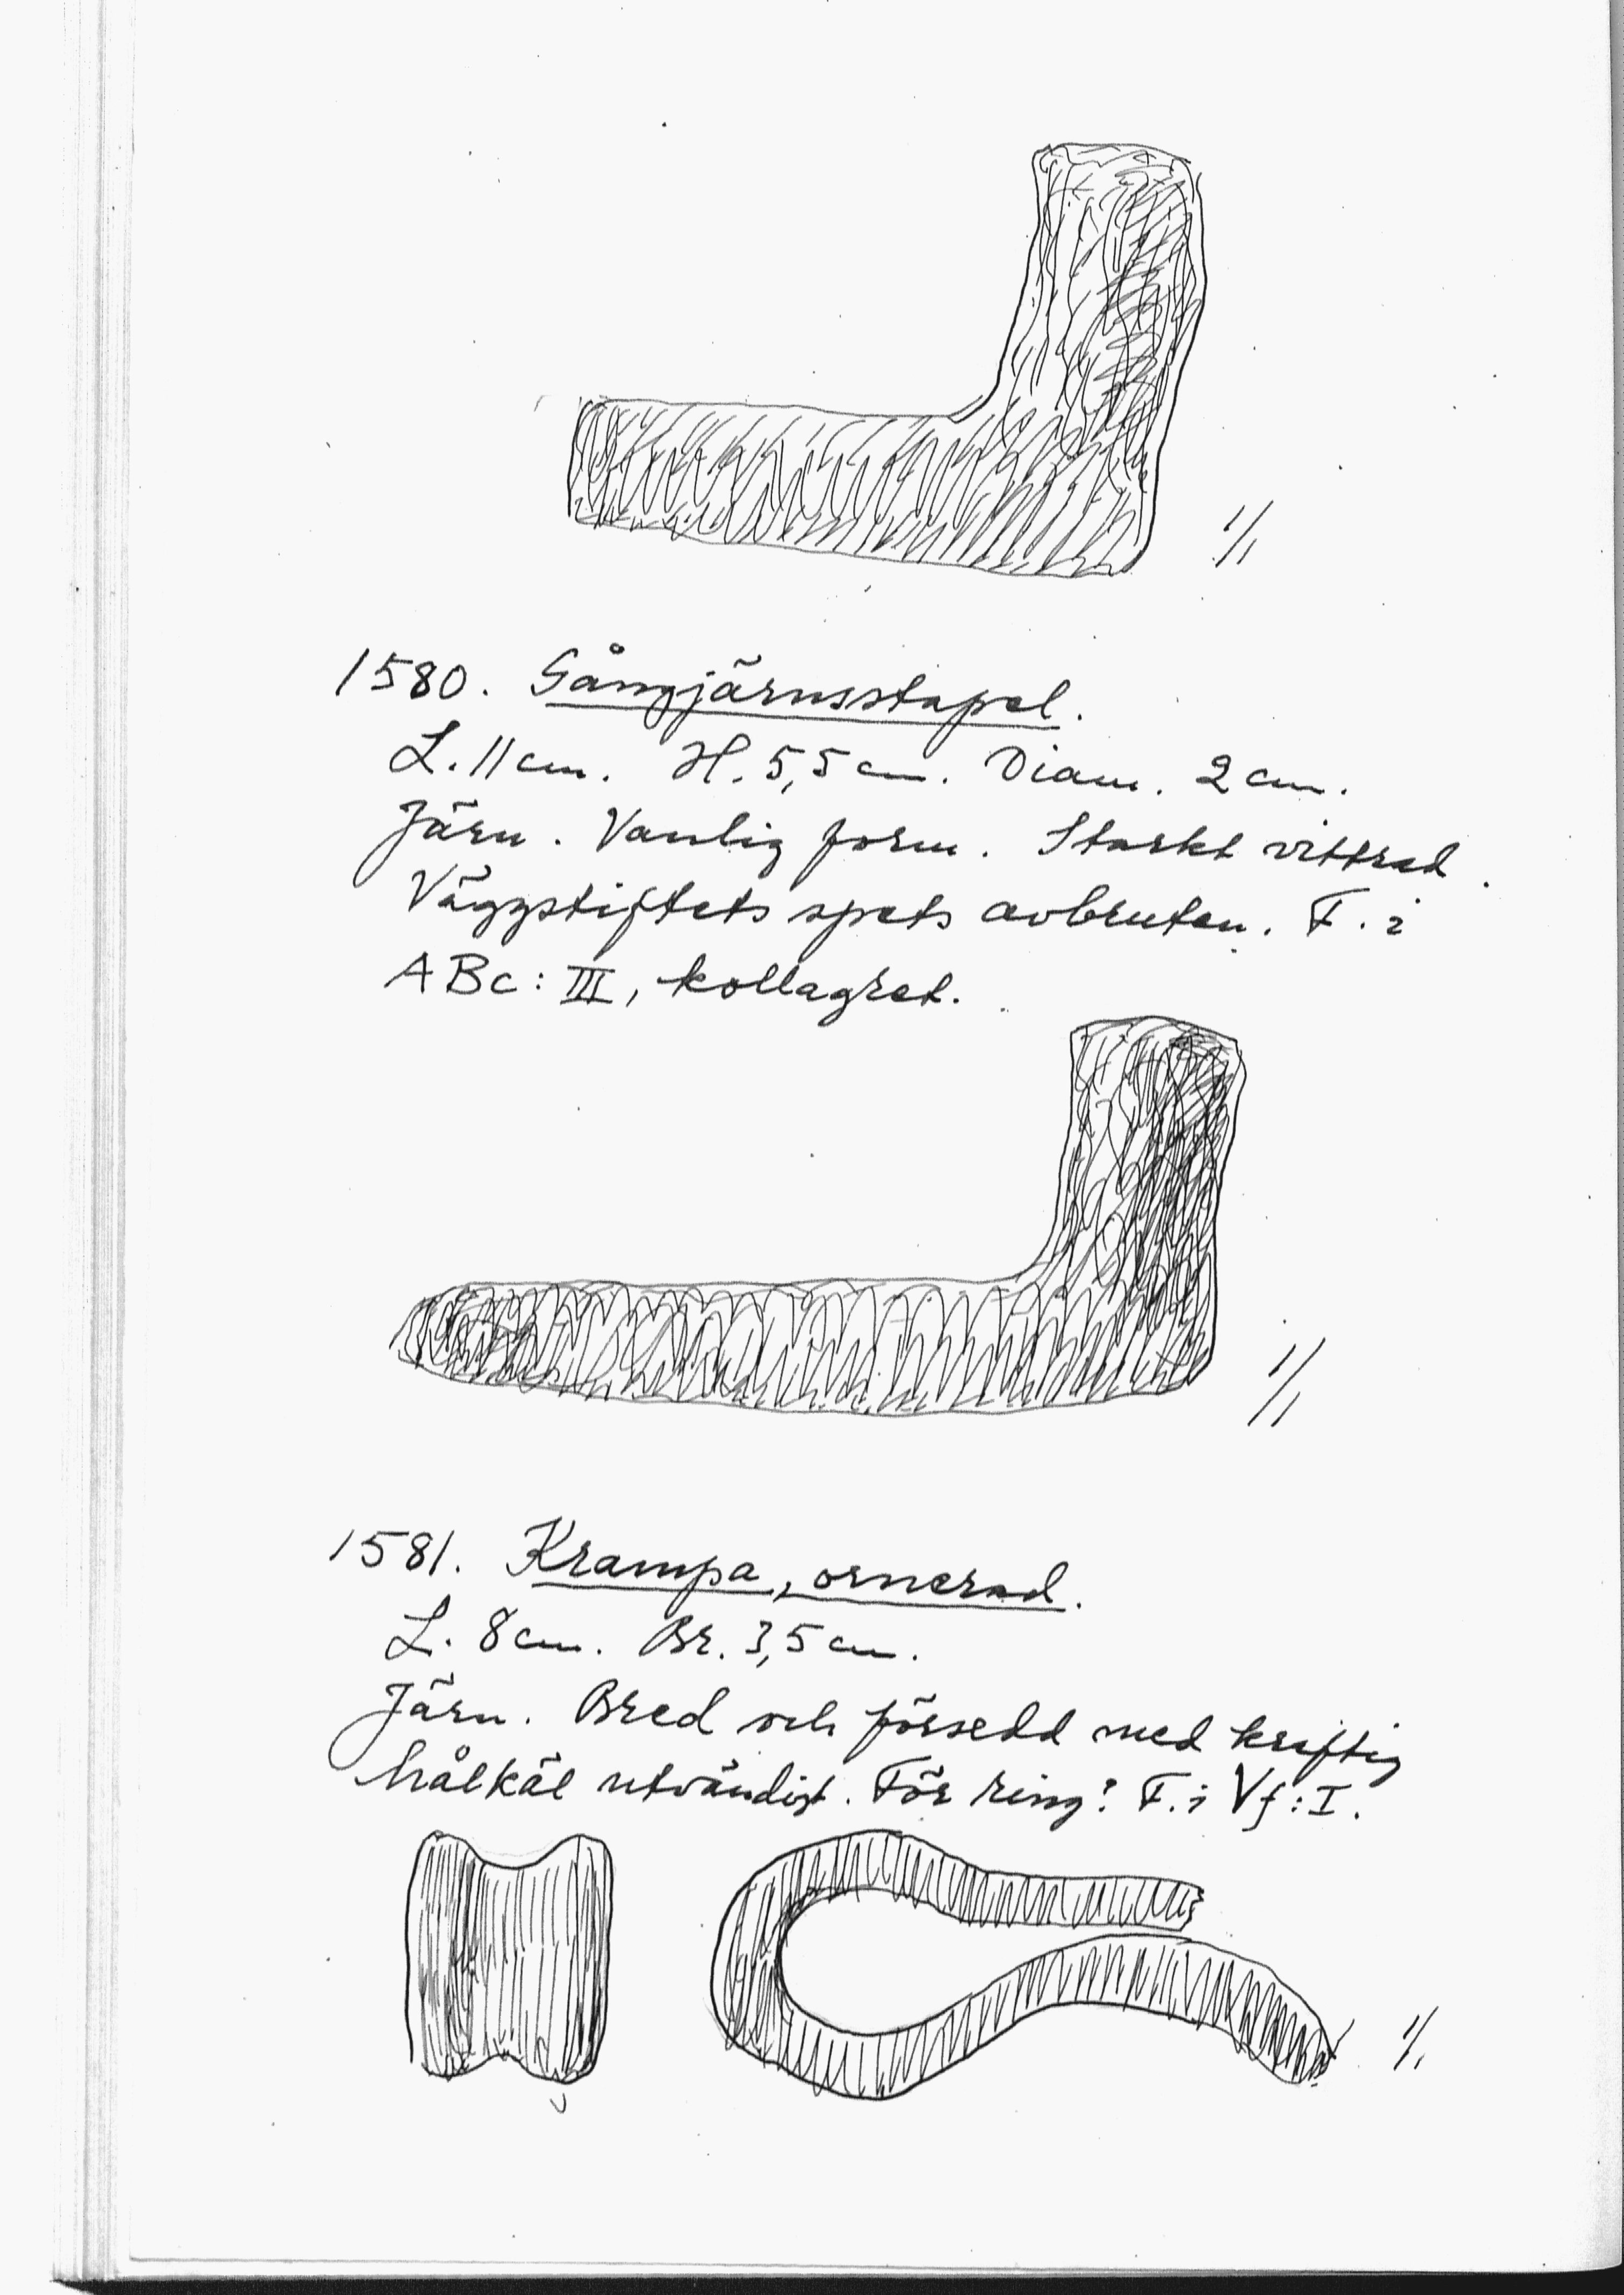 1/1
1580. Gångjärnsstapel.
L. 11 cm. H. 5,5 cm. Diam. 2 cm.
Järn. Vanlig form. Starkt vittrad.
Väggstiftets spets avbruten. F. i
ABc: III, kollagret.
1/1
1581. Krampa, ornerad.
L. 8 cm. Br. 3,5 cm.
Järn. Bred och försedd med kraftig
hålkäl utvändigt. För ring? F. i Vf: I.
1/1